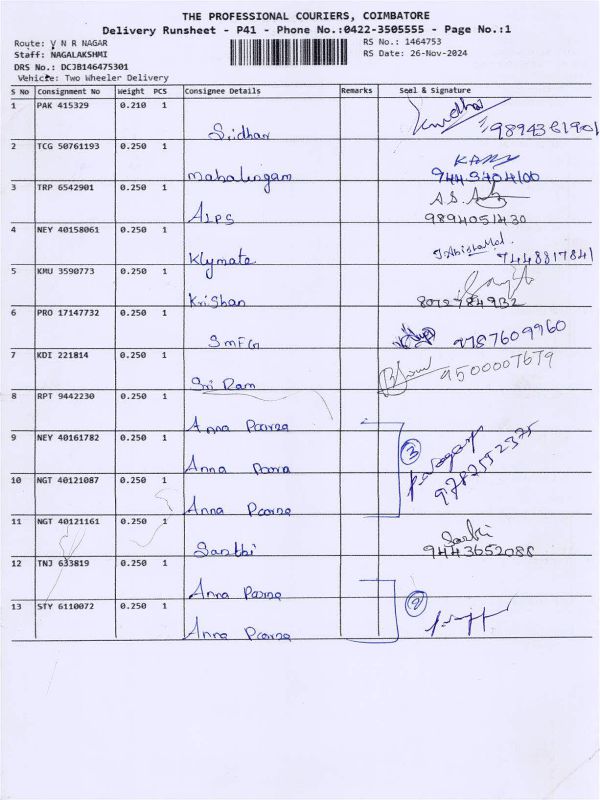 THE PROFESSIONAL COURIERS, COIMBATORE
Delivery Runsheet - P41 - Phone No.:0422-3505555 - Page No.:1
Route: V N R NAGAR
RS No.: 1464753
Staff: NAGALAKSHMI
RS Date: 26-Nov-2024
DRS No.: DCJB146475301
Vehicle: Two Wheeler Delivery
S No Consignment No Weight PCS Consignee Details Remarks Seal & Signature
1 PAK 415329 0.210 1
Sridhar
2 TCG 50761193 0.250 1
Mahalingam
3 TRP 6542901 0.250 1
A.S.
ALPS 9894051430
4 NEY 40158061 0.250 1
Klymate 7448817841
5 KMU 3590773 0.250 1
Krishan 8072784932
6 PRO 17147732 0.250 1
SMFG 9787609960
7 KDI 221814 0.250 1
9500007679
Sri Ram
8 RPT 9442230 0.250 1
Anna Poorna
9 NEY 40161782 0.250 1
3
Anna Poorna
9787552375
10 NGT 40121087 0.250 1
Anna Poorna
11 NGT 40121161 0.250 1
Sakthi 9443652088
12 TNJ 633819 0.250 1
Anna Poorna
13 STY 6110072 0.250 1
2
Anna Poorna